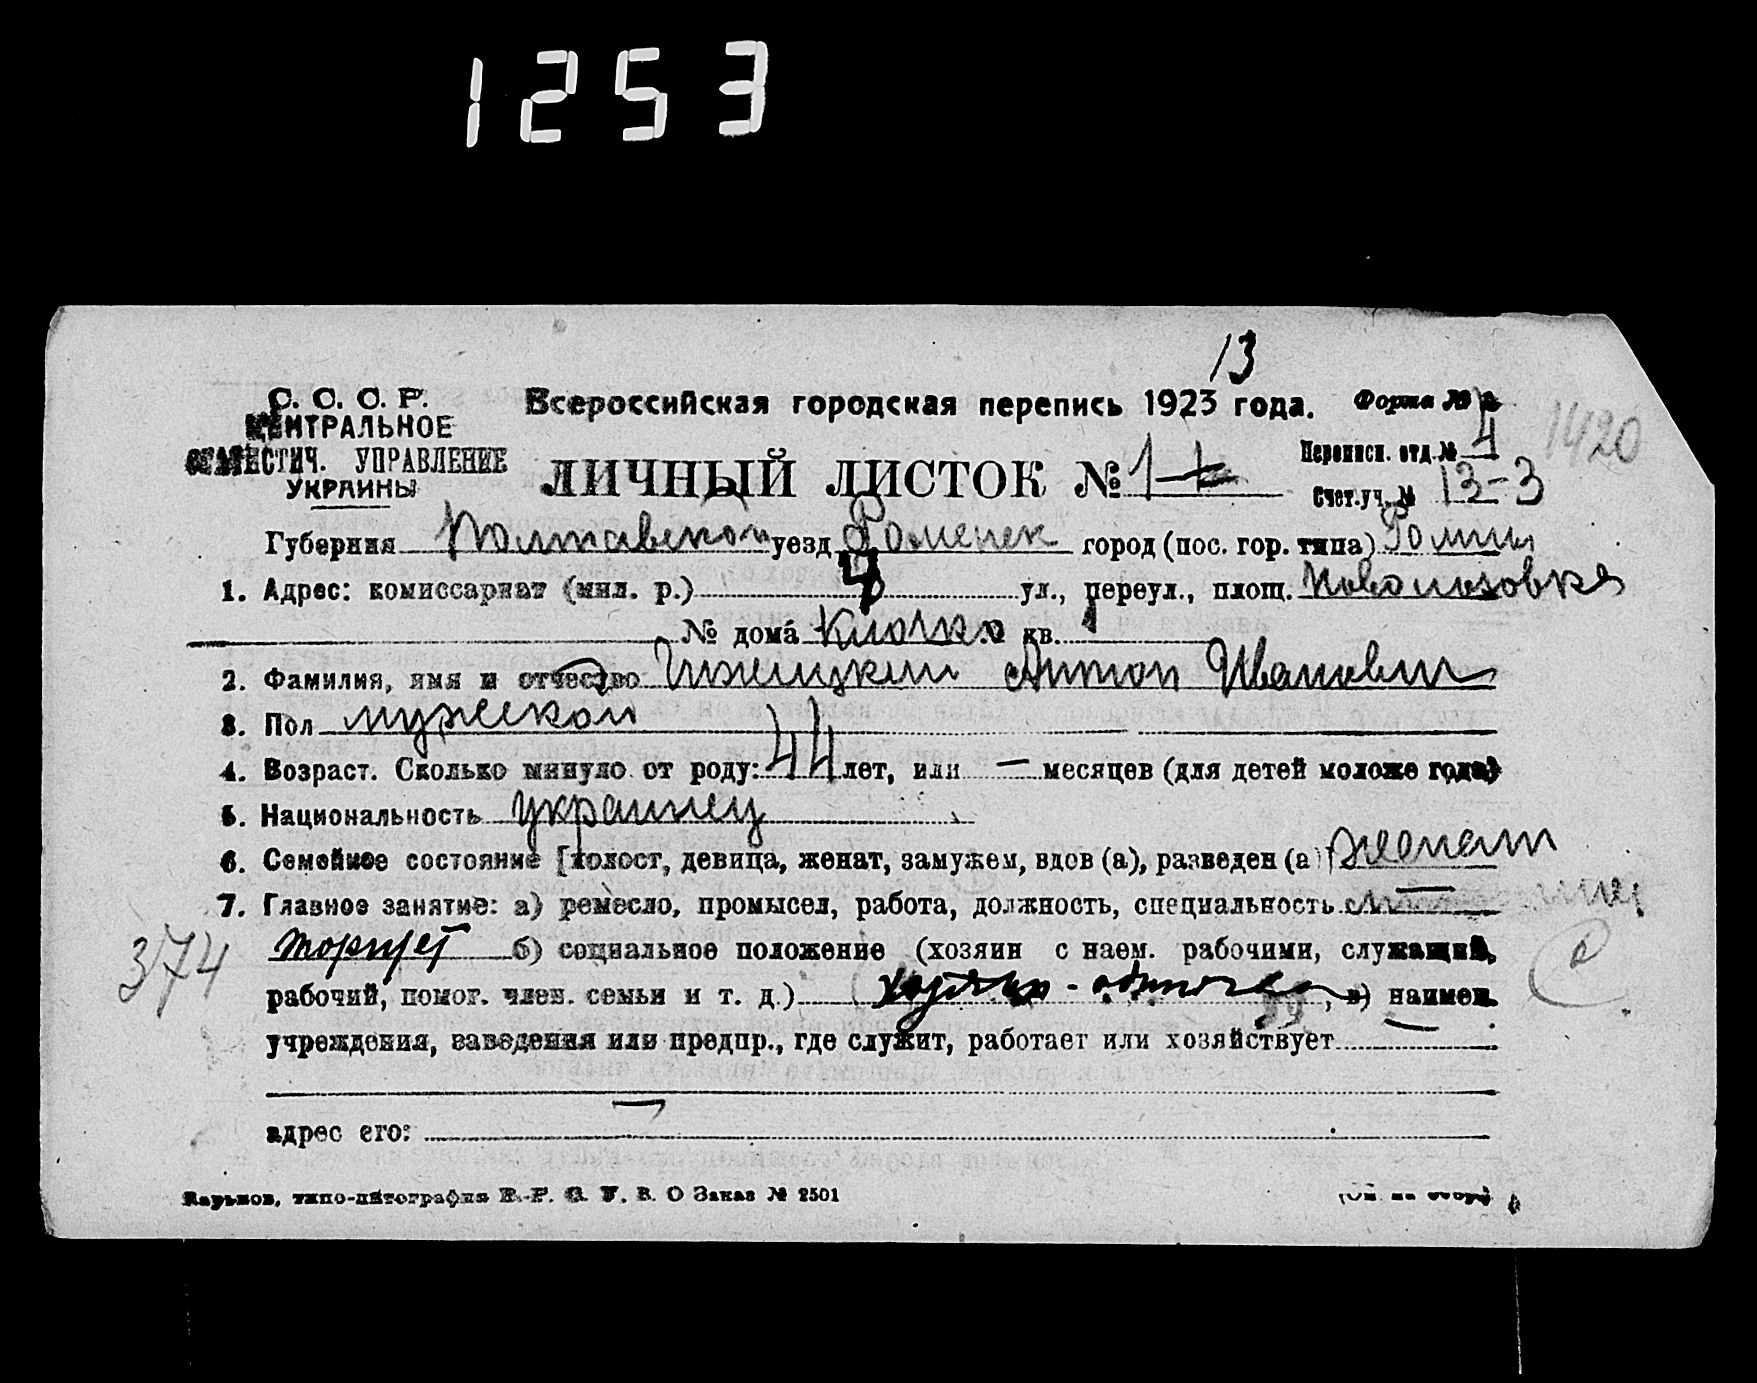 1253
13
С. С. С. Р.
ЦЕНТРАЛЬНОЕ
СТАТИСТИЧ. УПРАВЛЕНИЕ
УКРАИНЫ
Всероссийская городская перепись 1923 года.
Форма №
1420
ЛИЧНЫЙ ЛИСТОК № 1
Переписн. отд. № 4
Счет.уч. № 13-3
Губерния Полтавской уезд Роменск город (пос. гор. типа) Ромны
1. Адрес: комиссариат (мил. р.) ул., переул., площ.
№ дома Клочко кв. 1
2. Фамилия, имя и отчество Антон Иванович
3. Пол мужской
4. Возраст. Сколько минуло от роду: 44 лет, или — месяцев (для детей моложе года)
5. Национальность украинец
6. Семейное состояние [холост, девица, женат, замужем, вдов (а), разведен (а) женат
7. Главное занятие: а) ремесло, промысел, работа, должность, специальность
374
торгует б) социальное положение (хозяин с наем. рабочими, служащий,
рабочий, помог. член. семьи и т. д.) хозяин - одиночка, в) наимен.
учреждения, заведения или предпр., где служит, работает или хозяйствует
адрес его:
Харьков, типо-литография Заказ № 2501